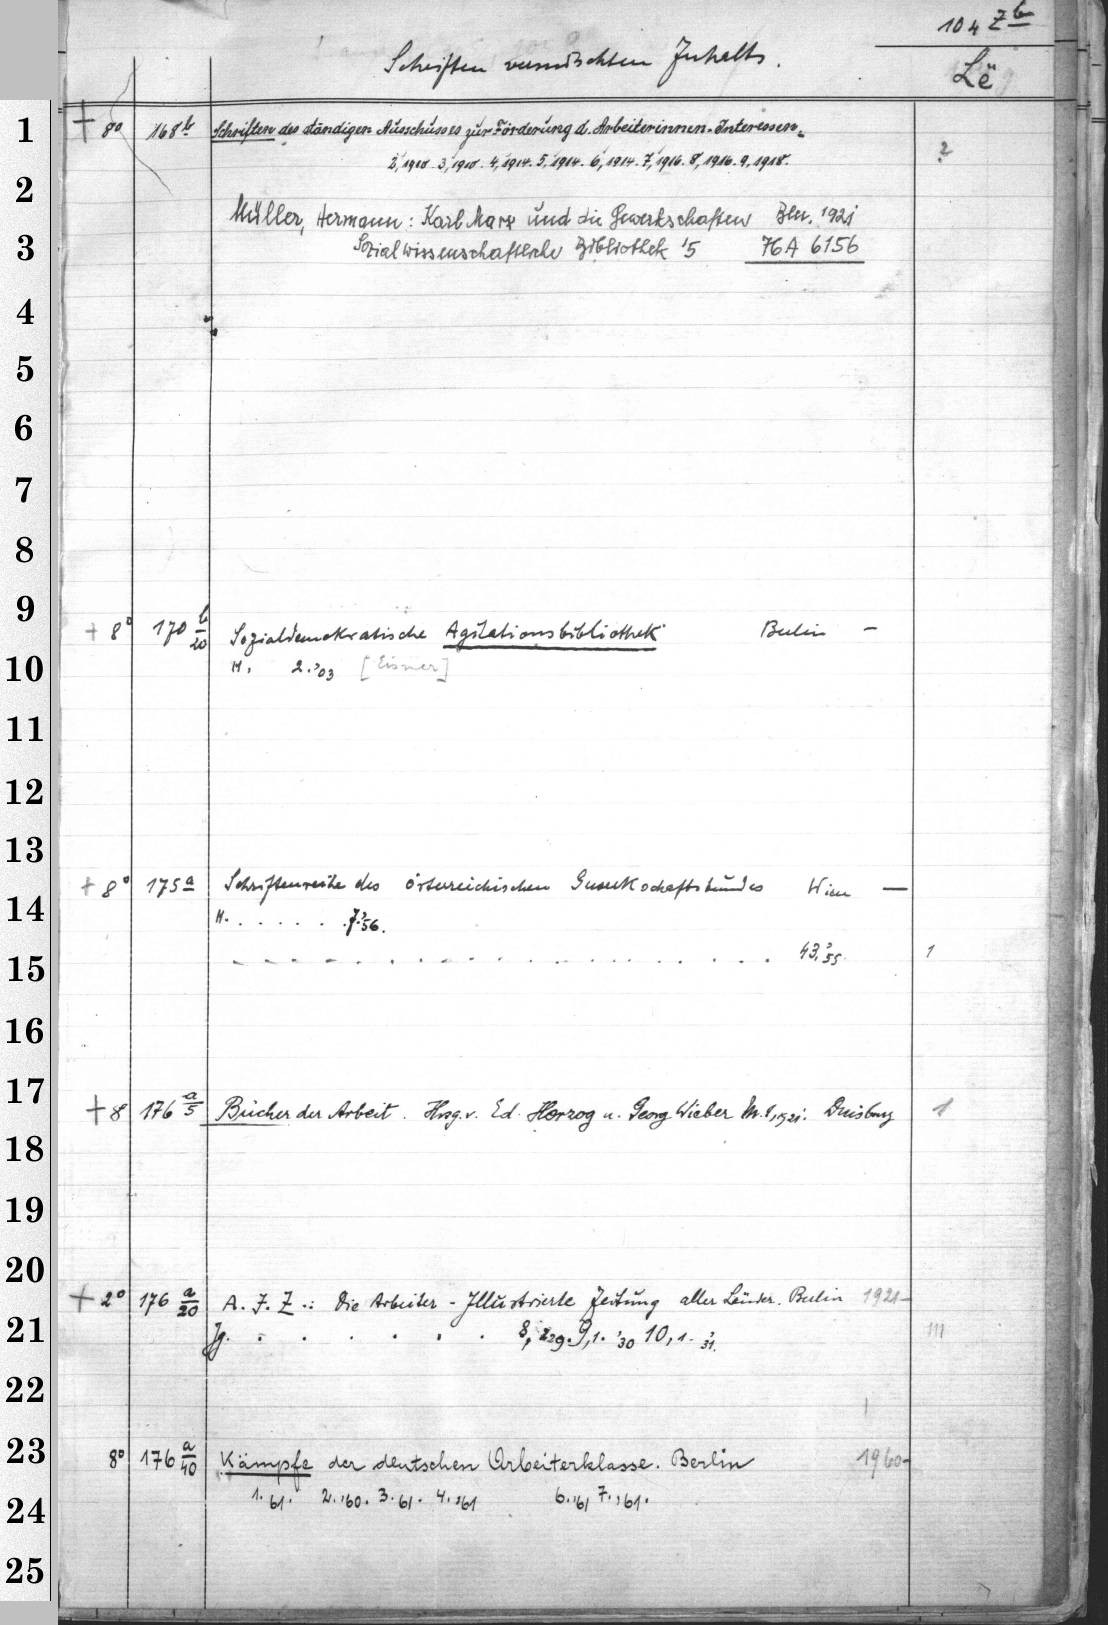 104 Zb
Schriften vermischten Inhalts.
Lë
1
+ 8° 168 b Schriften des ständigen Ausschusses zur Förderung d. Arbeiterinnen-Interessen.
2, 1910. 3, 1910. 4, 1914. 5, 1914. 6, 1914. 7, 1916. 8, 1916. 9, 1918.
2
Müller, Hermann: Karl Marx und die Gewerkschaften Bln. 1921
3
Sozialwissenschaftliche Bibliothek '5 76 A 6156
4
5
6
7
8
9
+ 8° 170 b/20 Sozialdemokratische Agitationsbibliothek Berlin –
10
H. 2.'03 [Eisner]
11
12
13
+ 8° 175 a Schriftenreihe des österreichischen Gewerkschaftsbundes Wien —
14
H. . . . . . 7.'56.
15
43,'55. 1
16
17
+ 8 176 a/5 Bücher der Arbeit. Hrsg. v. Ed. Herzog u. Georg Wieber 1921. Duisburg 1
18
19
20
+ 2° 176 a/20 A. J. Z.: Die Arbeiter-Illustrierte Zeitung aller Länder. Berlin 1921–
21
Jg. . . . . . . 8, 29. 9,1. '30 10,1. '31. III
22
23
8° 176 a/40 Kämpfe der deutschen Arbeiterklasse. Berlin 1960–
24
1.'61. 2.'60. 3.'61. 4.'61 6.'61 7.'61.
25